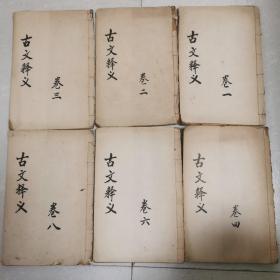 古文释义
卷三
古文释义
卷二
古文释义
卷一
古文释义
卷八
古文释义
卷六
古文释义
卷四